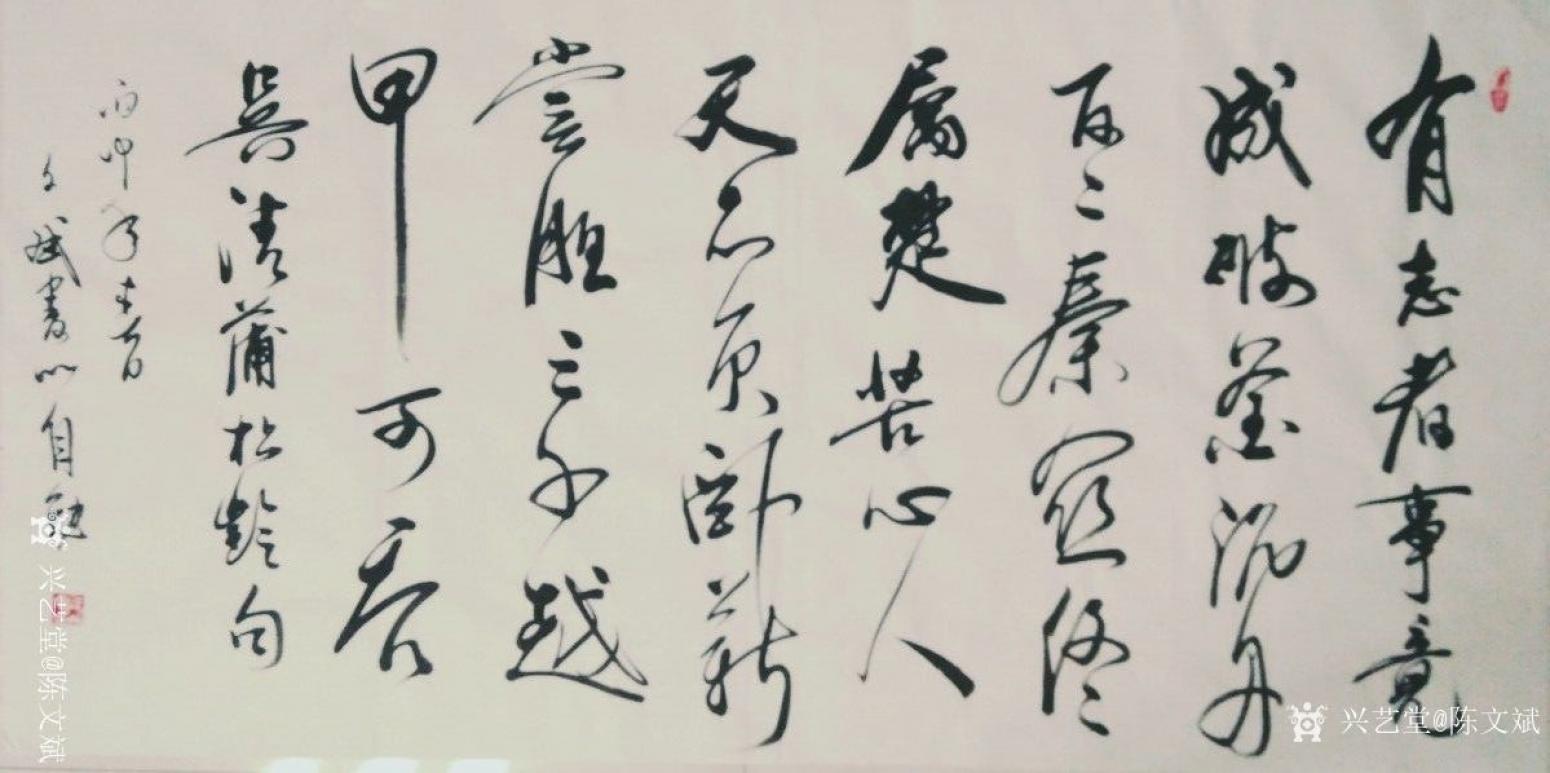 有志者事竟
成破釜沉舟
百二秦關终
属楚苦心人
天不负卧薪
尝胆三千越
甲可吞
吳清蒲松齡句
丙申年
文斌書以自勉
兴艺堂@陈文斌
兴艺堂@陈文斌